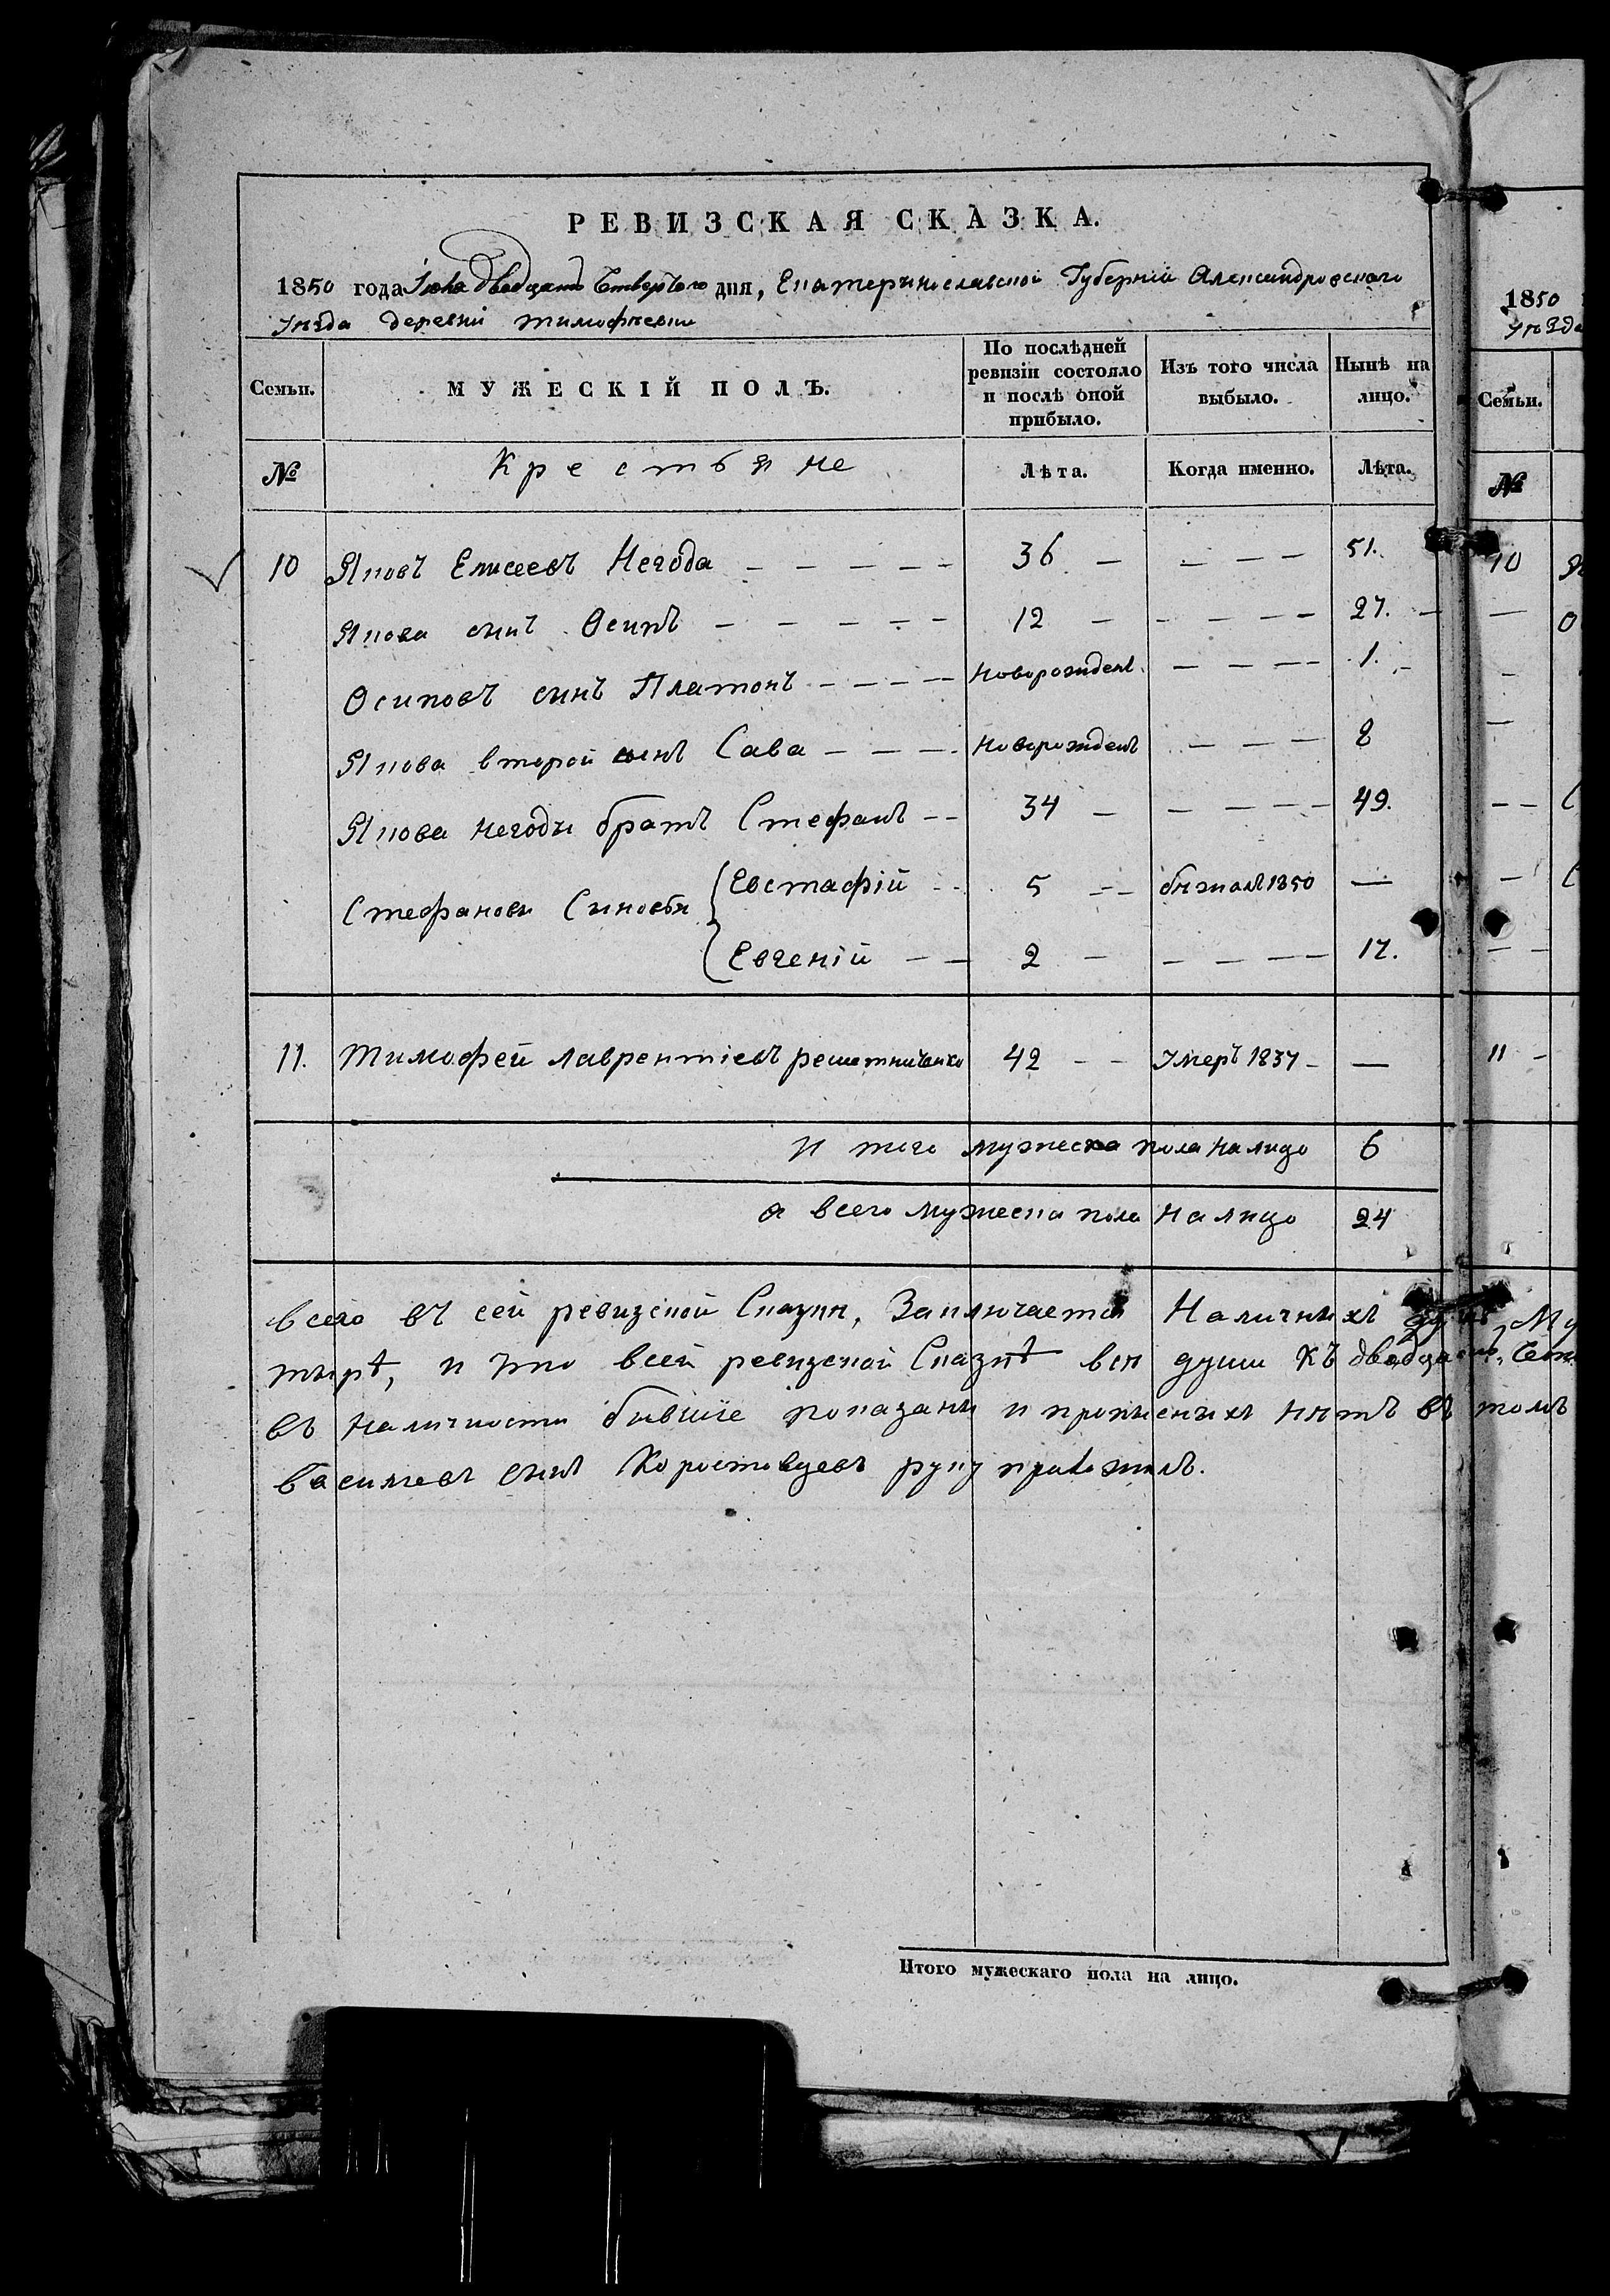 РЕВИЗСКАЯ СКАЗКА.
1850 года Іюня двадцать Четвертого дня, Екатеринославской Губерніи Александровского
уѣзда деревни тимофѣевки
Семьи. МУЖЕСКІЙ ПОЛЪ. По послѣдней ревизіи состояло и послѣ оной прибыло. Изъ того числа выбыло. Нынѣ на лицо.
№ Крестьяне Лѣта. Когда именно. Лѣта.
10 Яковъ Елисеевъ Негода — — — — — 36 — — — — 51.
Якова сынъ Осипъ — — — — — 12 — — — — — 27. —
Осиповъ сынъ Платонъ — — — — новорожденъ — — — — 1. —
Якова второй сынъ Сава — — — новорожденъ — — — 8
Якова негоды братъ Стефанъ — — 34 — — — — — 49.
Стефановы Сыновья { Евстафій — — 5 — — бѣжалъ 1850 —
Евгеній — — 2 — — — — — 17.
11. Тимофей лаврентіевъ решетниченко 42 — — умеръ 1837 — —
И того мужеска пола на лицо 6
а всего мужеска пола на лицо 24
всего въ сей ревизской Сказки, Заключается Наличныхъ
тырѣ, и что всей ревизской Сказкѣ всѣ души къ двадцать
въ наличности бывшіе показаны и прописныхъ нѣтъ въ томъ
васильевъ сынъ Коростовцевъ руку приложилъ.
Итого мужескаго пола на лицо.
1850
уѣзда
Семьи.
№
10
11 —